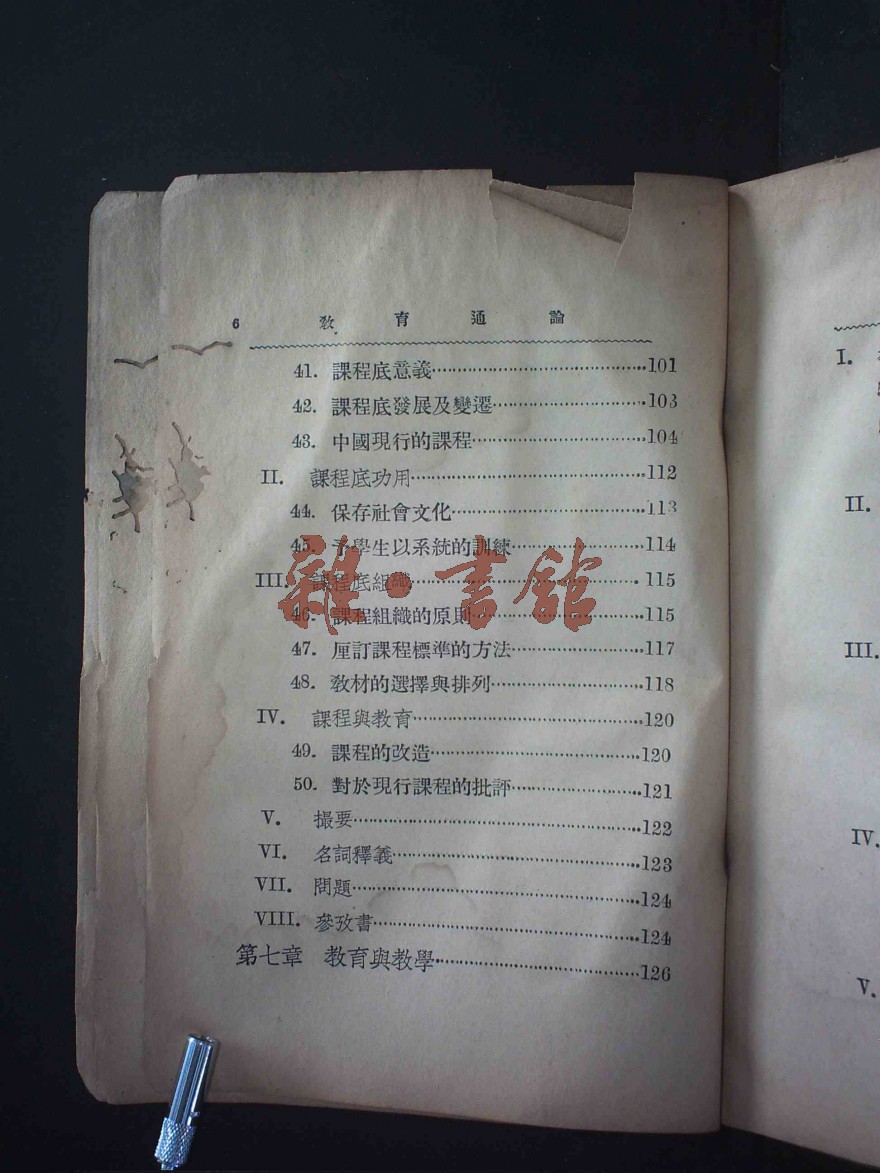 6 教育通論
41. 課程底意義……101
42. 課程底發展及變遷……103
43. 中國現行的課程……104
II. 課程底功用……112
44. 保存社會文化……113
45. 予學生以系統的訓練……114
III. 課程底組織……115
46. 課程組織的原則……115
47. 厘訂課程標準的方法……117
48. 敎材的選擇與排列……118
IV. 課程與敎育……120
49. 課程的改造……120
50. 對於現行課程的批評……121
V. 撮要……122
VI. 名詞釋義……123
VII. 問題……124
VIII. 參攷書……124
第七章 敎育與敎學……126
雜·書館
I.
II.
III.
IV.
V.